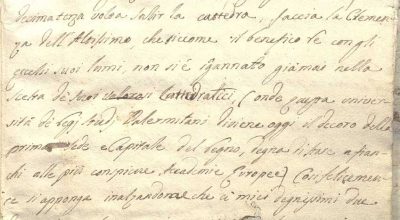 decimaterza volea salir la cattedra, faccia la Clemen-
za dell'Altissimo, che siccome il benefico Re con gli
eccelsi suoi lumi, non si è ingannato giamai nella
scelta de' suoi valorosi Cattedratici, (onde questa univer-
sità de' Regj Studj Palermitani diviene oggi il decoro della
prima Sede e Capitale del Regno, degna di stare a fian-
chi alle più conspicue Academie Europee) Così felicemen-
te si apponga inalzandone che a' miei degnissimi due